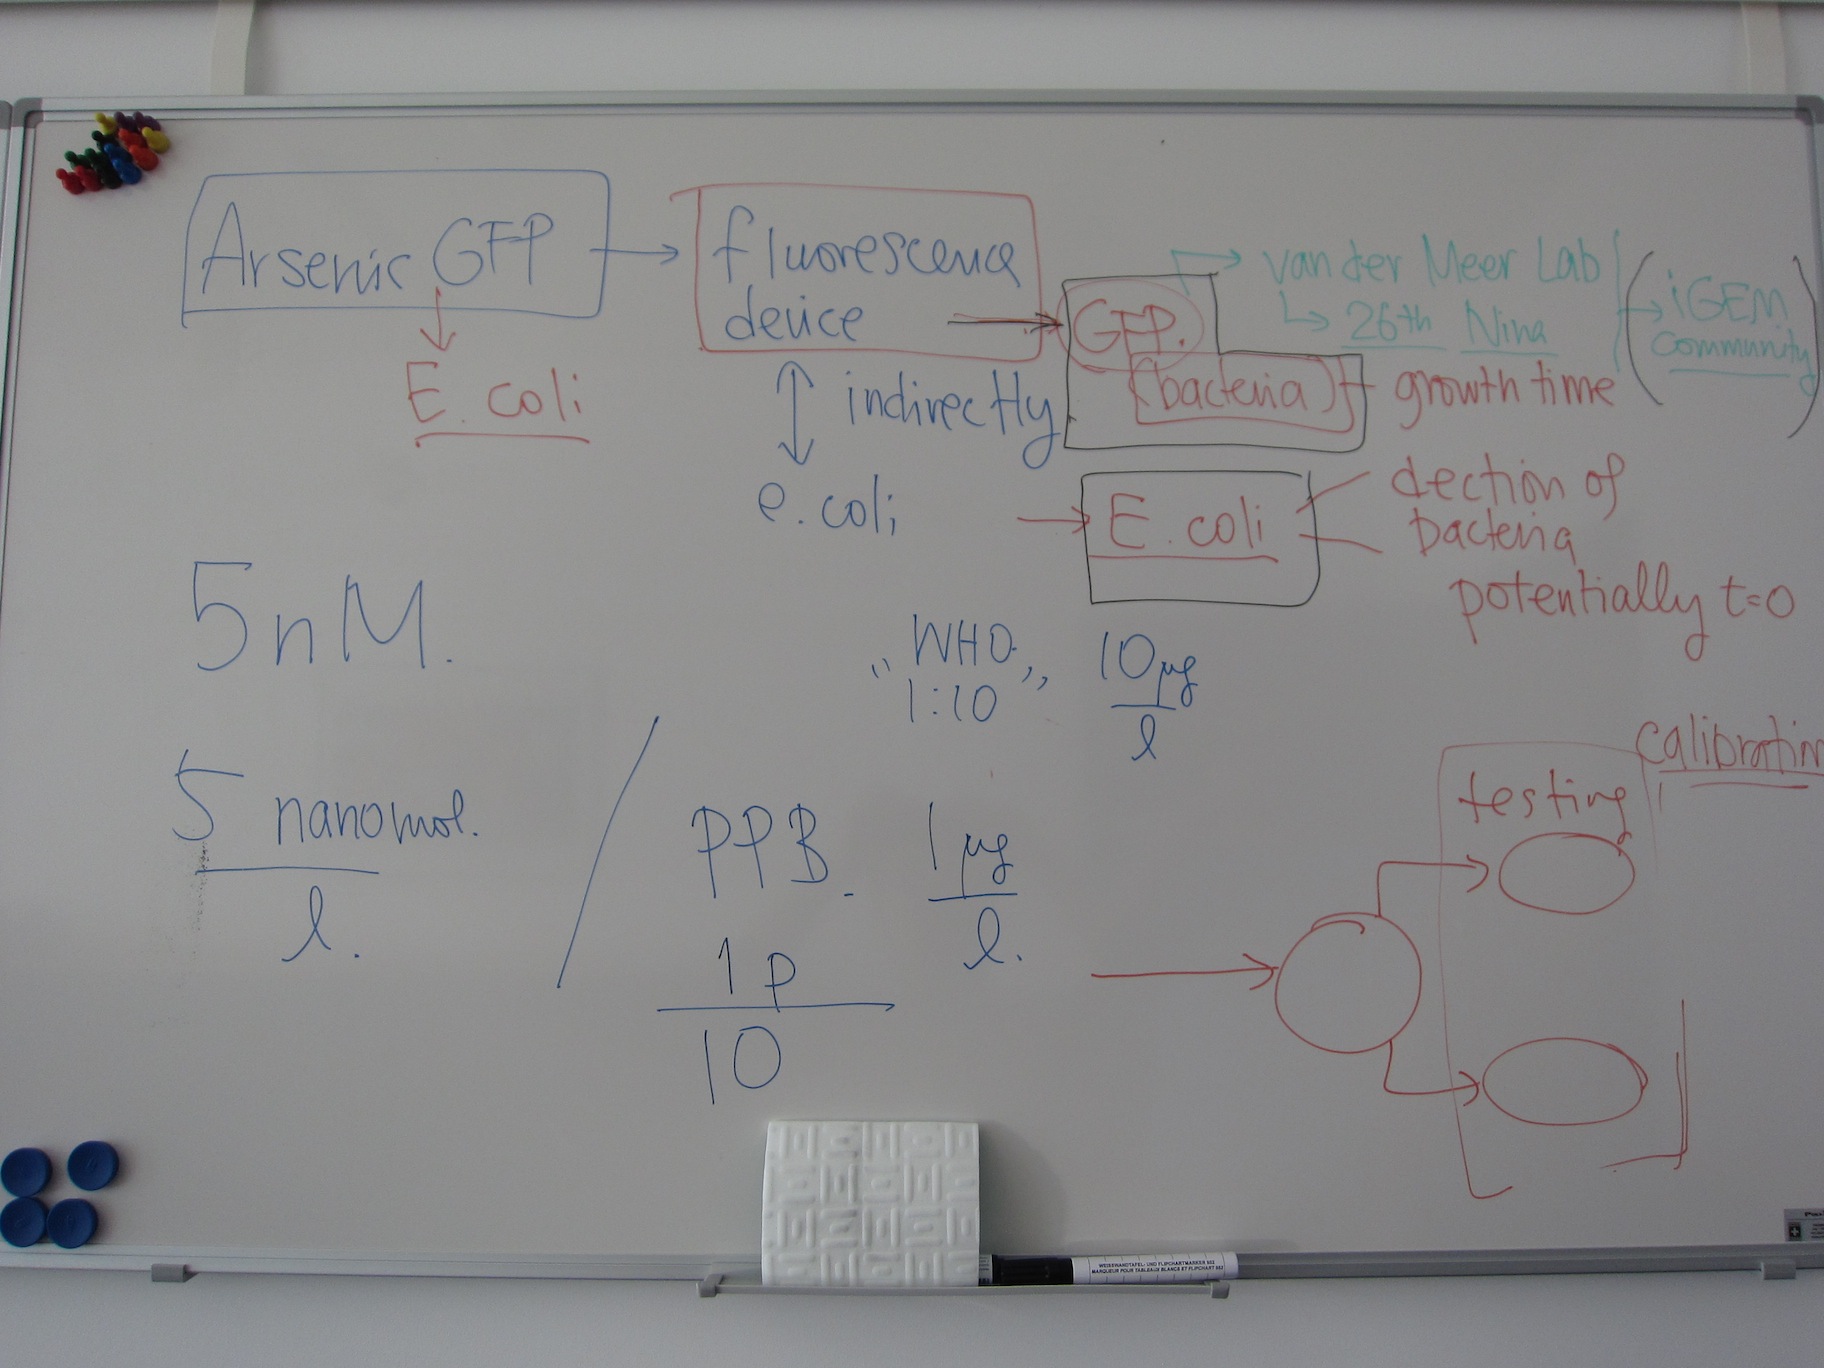 Arsenic GFP
E. coli
fluorescence
device
indirectly
e.coli
GFP.
(bacteria)
growth time
van der Meer Lab
26th Nina
iGEM
community
E. coli
dection of
bacteria
potentially t=0
5nM.
"WHO.
1:10"
10 µg
l
5 nanomol.
l.
PPB.
1 p
10
1 µg
l.
calibratin
testing
WEISSWANDTAFEL- UND FLIPCHARTMARKER 552
MARQUEUR POUR TABLEAUX BLANCS ET FLIPCHART 552